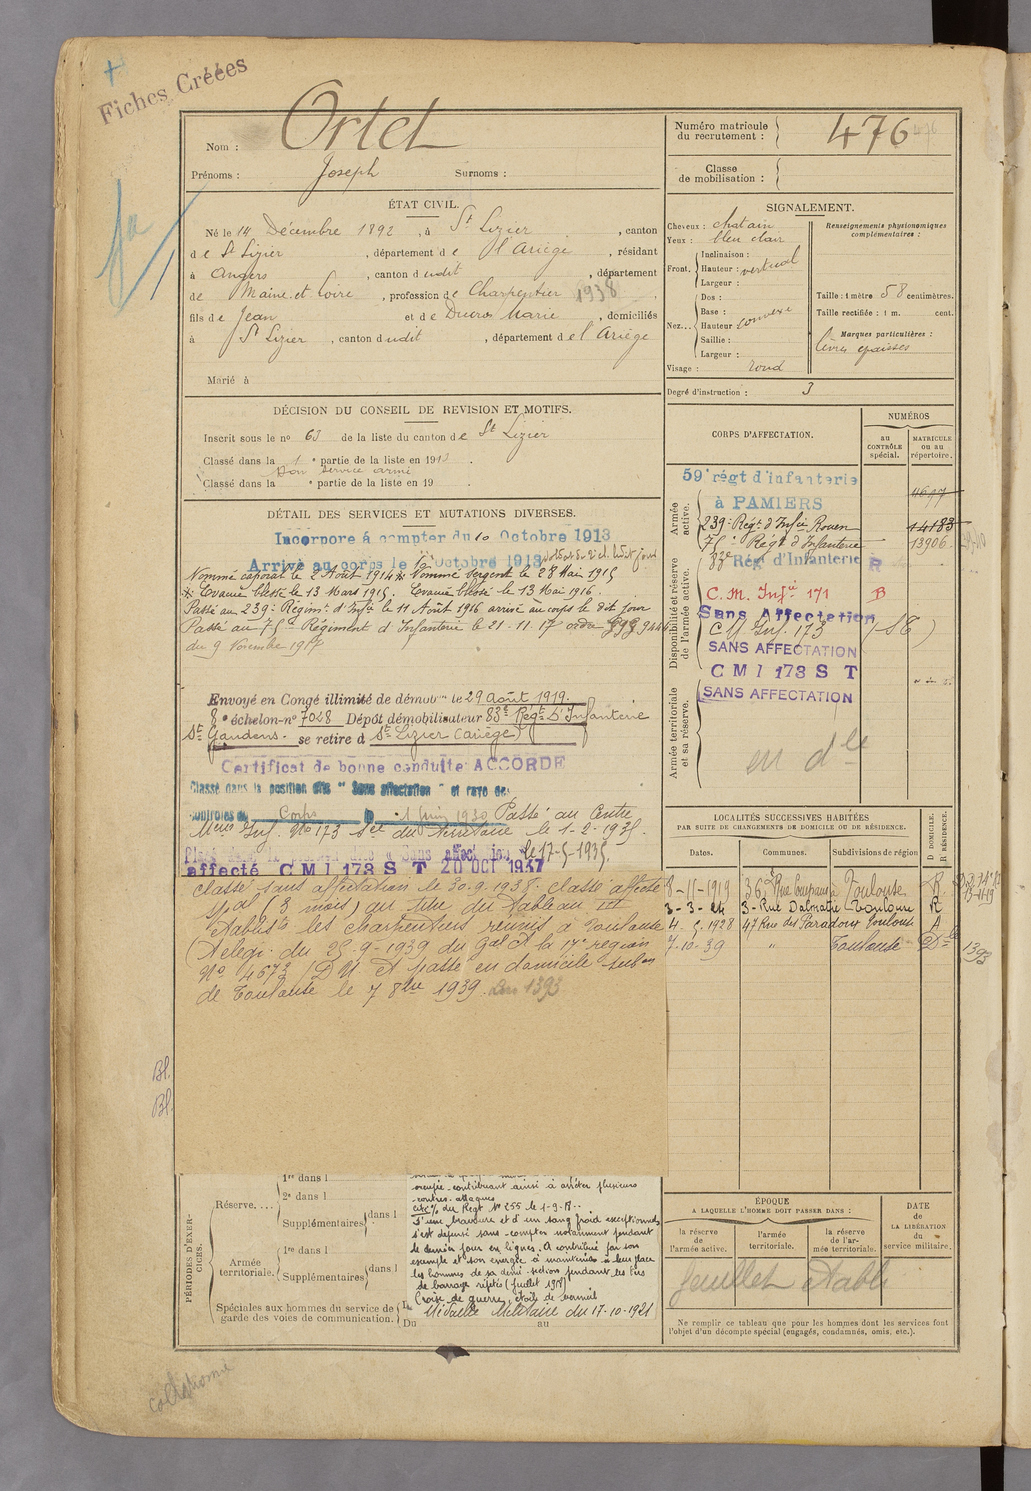 Fiches Créées
Nom : Ortet
Prénoms : Joseph Surnoms :
Numéro matricule du recrutement : 476
Classe de mobilisation :
ÉTAT CIVIL.
Né le 14 Décembre 1892, à St Lizier, canton
de St Lizier, département de l'Ariège, résidant
à Angers, canton dudit, département
de Maine et Loire, profession de Charpentier 1938
fils de Jean et de Ducros Marie, domiciliés
à St Lizier, canton dudit, département de l'Ariège
Marié à
SIGNALEMENT.
Cheveux : chatain
Yeux : bleu clair
Front. Inclinaison :
Hauteur : vertical
Largeur :
Nez... Dos :
Base :
Hauteur convexe
Saillie :
Largeur :
Visage : rond
Renseignements physionomiques complémentaires :
Taille : 1 mètre 58 centimètres.
Taille rectifiée : 1 m. cent.
Marques particulières :
lèvres épaisses
Degré d'instruction : 3
DÉCISION DU CONSEIL DE REVISION ET MOTIFS.
Inscrit sous le no 63 de la liste du canton de St Lizier
Classé dans la 1e partie de la liste en 1913.
Bon service armé
Classé dans la e partie de la liste en 19 .
DÉTAIL DES SERVICES ET MUTATIONS DIVERSES.
Incorporé à compter du 10 Octobre 1913
Arrivé au corps le 10 Octobre 1913
Nommé caporal le 2 Août 1914 Nommé Sergent le 28 Mai 1915
Evacué blessé le 13 Mars 1915. Evacué blessé le 13 Mai 1916.
Passé au 239e Régimt d'Infie le 11 Août 1916 arrivé au corps le dit jour
Passé au 75e Régiment d'Infanterie le 21.11.17 ordre
du 9 Novembre 1917
Envoyé en Congé illimité de démobon le 29 Août 1919.
8e échelon-no 7028 Dépôt démobilisateur 83e Régt D'Infanterie
St Gaudens. se retire à St Lizier (Ariège)
Certificat de bonne conduite ACCORDÉ
Classé dans la position dite "Sans affectation" et rayé des
contrôles du Corps le 1 Juin 1930 Passé au Centre
Mens Inf. No 173 Son du Territoire le 1-2-1935.
Placé dans la position dite "Sans affectation" le 17-5-1935.
affecté C M I 173 S T 20 OCT 1937
Classé sans affectation le 30.9.1938. Classé affecté
spal (3 mois) au titre du tableau III
Etablists les charpentiers réunis à Toulouse
(Télég. du 25-9-1939 du Gal Ct la 17e région
No 4673/DM et passé en domicile subon
de Toulouse le 7 8bre 1939. 1393
CORPS D'AFFECTATION.
NUMÉROS
au CONTRÔLE spécial.
MATRICULE ou au répertoire.
Armée active.
Disponibilité et réserve de l'armée active.
Armée territoriale et sa réserve.
59e régt d'infanterie
à PAMIERS
239e Régt d'Infie Rouen 14183
75e Régt d'Infanterie 13906
83e Régt d'Infanterie R
C. M. Infie 171 B
Sans Affectation
C M Inf. 173 (ST)
SANS AFFECTATION
C M I 173 S T
SANS AFFECTATION
en dle
LOCALITÉS SUCCESSIVES HABITÉES
PAR SUITE DE CHANGEMENTS DE DOMICILE OU DE RÉSIDENCE.
Dates. Communes. Subdivisions de région D DOMICILE. R RÉSIDENCE.
8-11-1919 36, Rue Toulouse R.
3-3-24 3-Rue Dalmatie Toulouse R
4.5.1928 47 Rue des Paradoux Toulouse A
7-10-39 " Toulouse Dle
1393
Bl.
Bl.
PÉRIODES D'EXERCICES.
Réserve.... 1re dans l
2e dans l
Supplémentaires dans l
Armée territoriale. 1re dans l
Supplémentaires dans l
Spéciales aux hommes du service de garde des voies de communication.
Du au
occupée contribuant ainsi à arrêter plusieurs
contres-attaques
Cité % du Régt No 255 le 1-9-18..
D'une bravoure et d'un sang froid exceptionnels
s'est dépensé sans compter notamment pendant
le dernier jour en lignes. A contribué par son
exemple et son énergie à maintenir à leur place
les hommes de sa demi-section pendant les tirs
de barrage répétés (Juillet 1918)
Croix de guerre, étoile de vermeil
Médaille Militaire du 17-10-1921
ÉPOQUE
A LAQUELLE L'HOMME DOIT PASSER DANS :
la réserve de l'armée active.
l'armée territoriale.
la réserve de l'armée territoriale.
DATE de LA LIBÉRATION du service militaire.
feuillet établi
Ne remplir ce tableau que pour les hommes dont les services font
l'objet d'un décompte spécial (engagés, condamnés, omis, etc.).